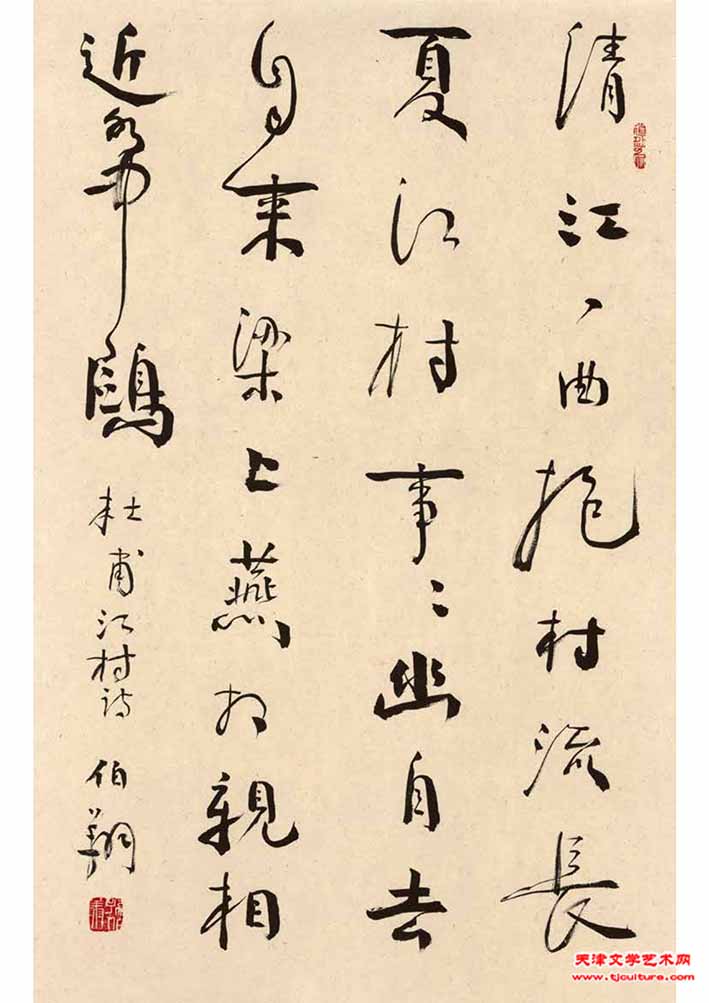 清江一曲抱村流長
夏江村事〻幽自去
自来梁上燕相親相
近水中鷗
杜甫江村诗
伯翔
天津文学艺术网
www.tjculture.com